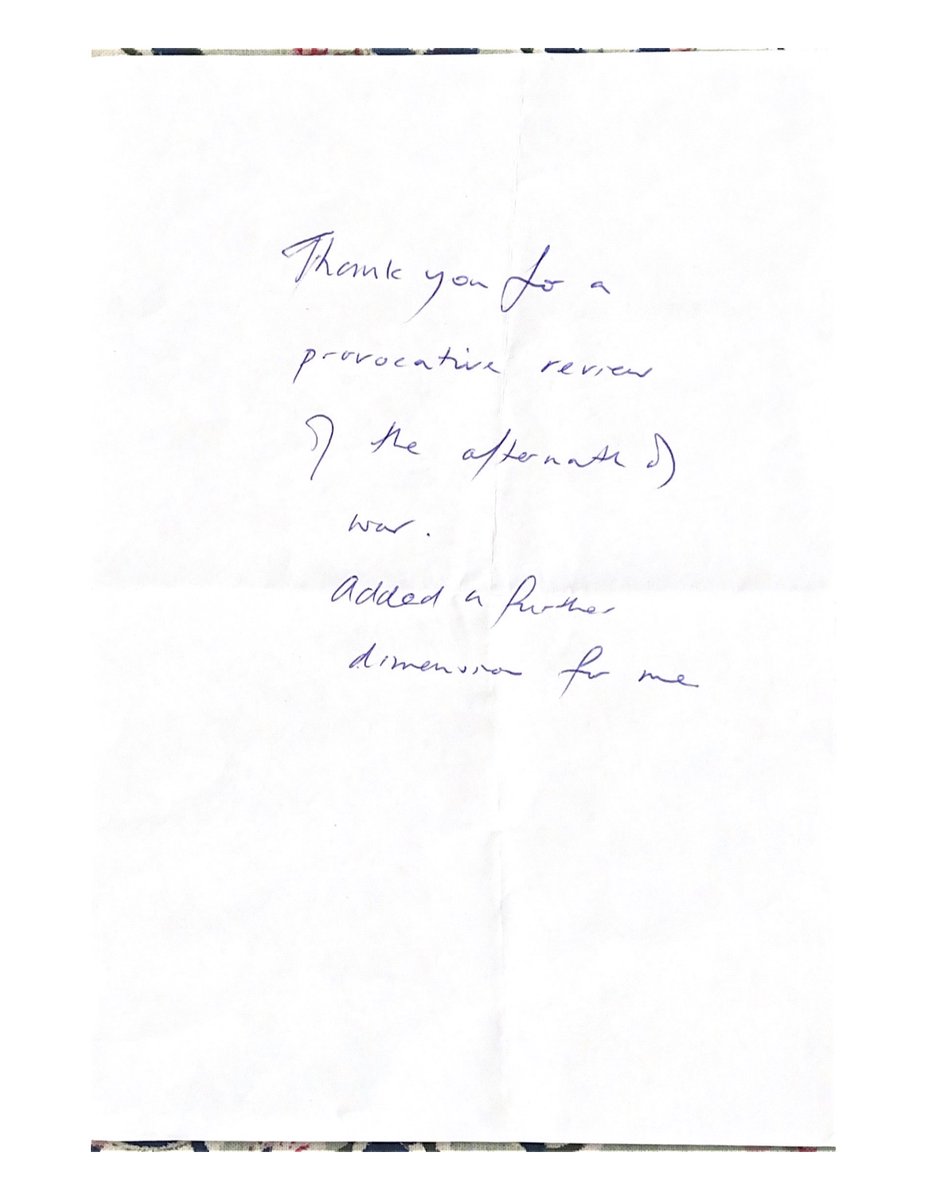 Thank you for a
provocative review
of the aftermath of
war.
Added a further
dimension for me